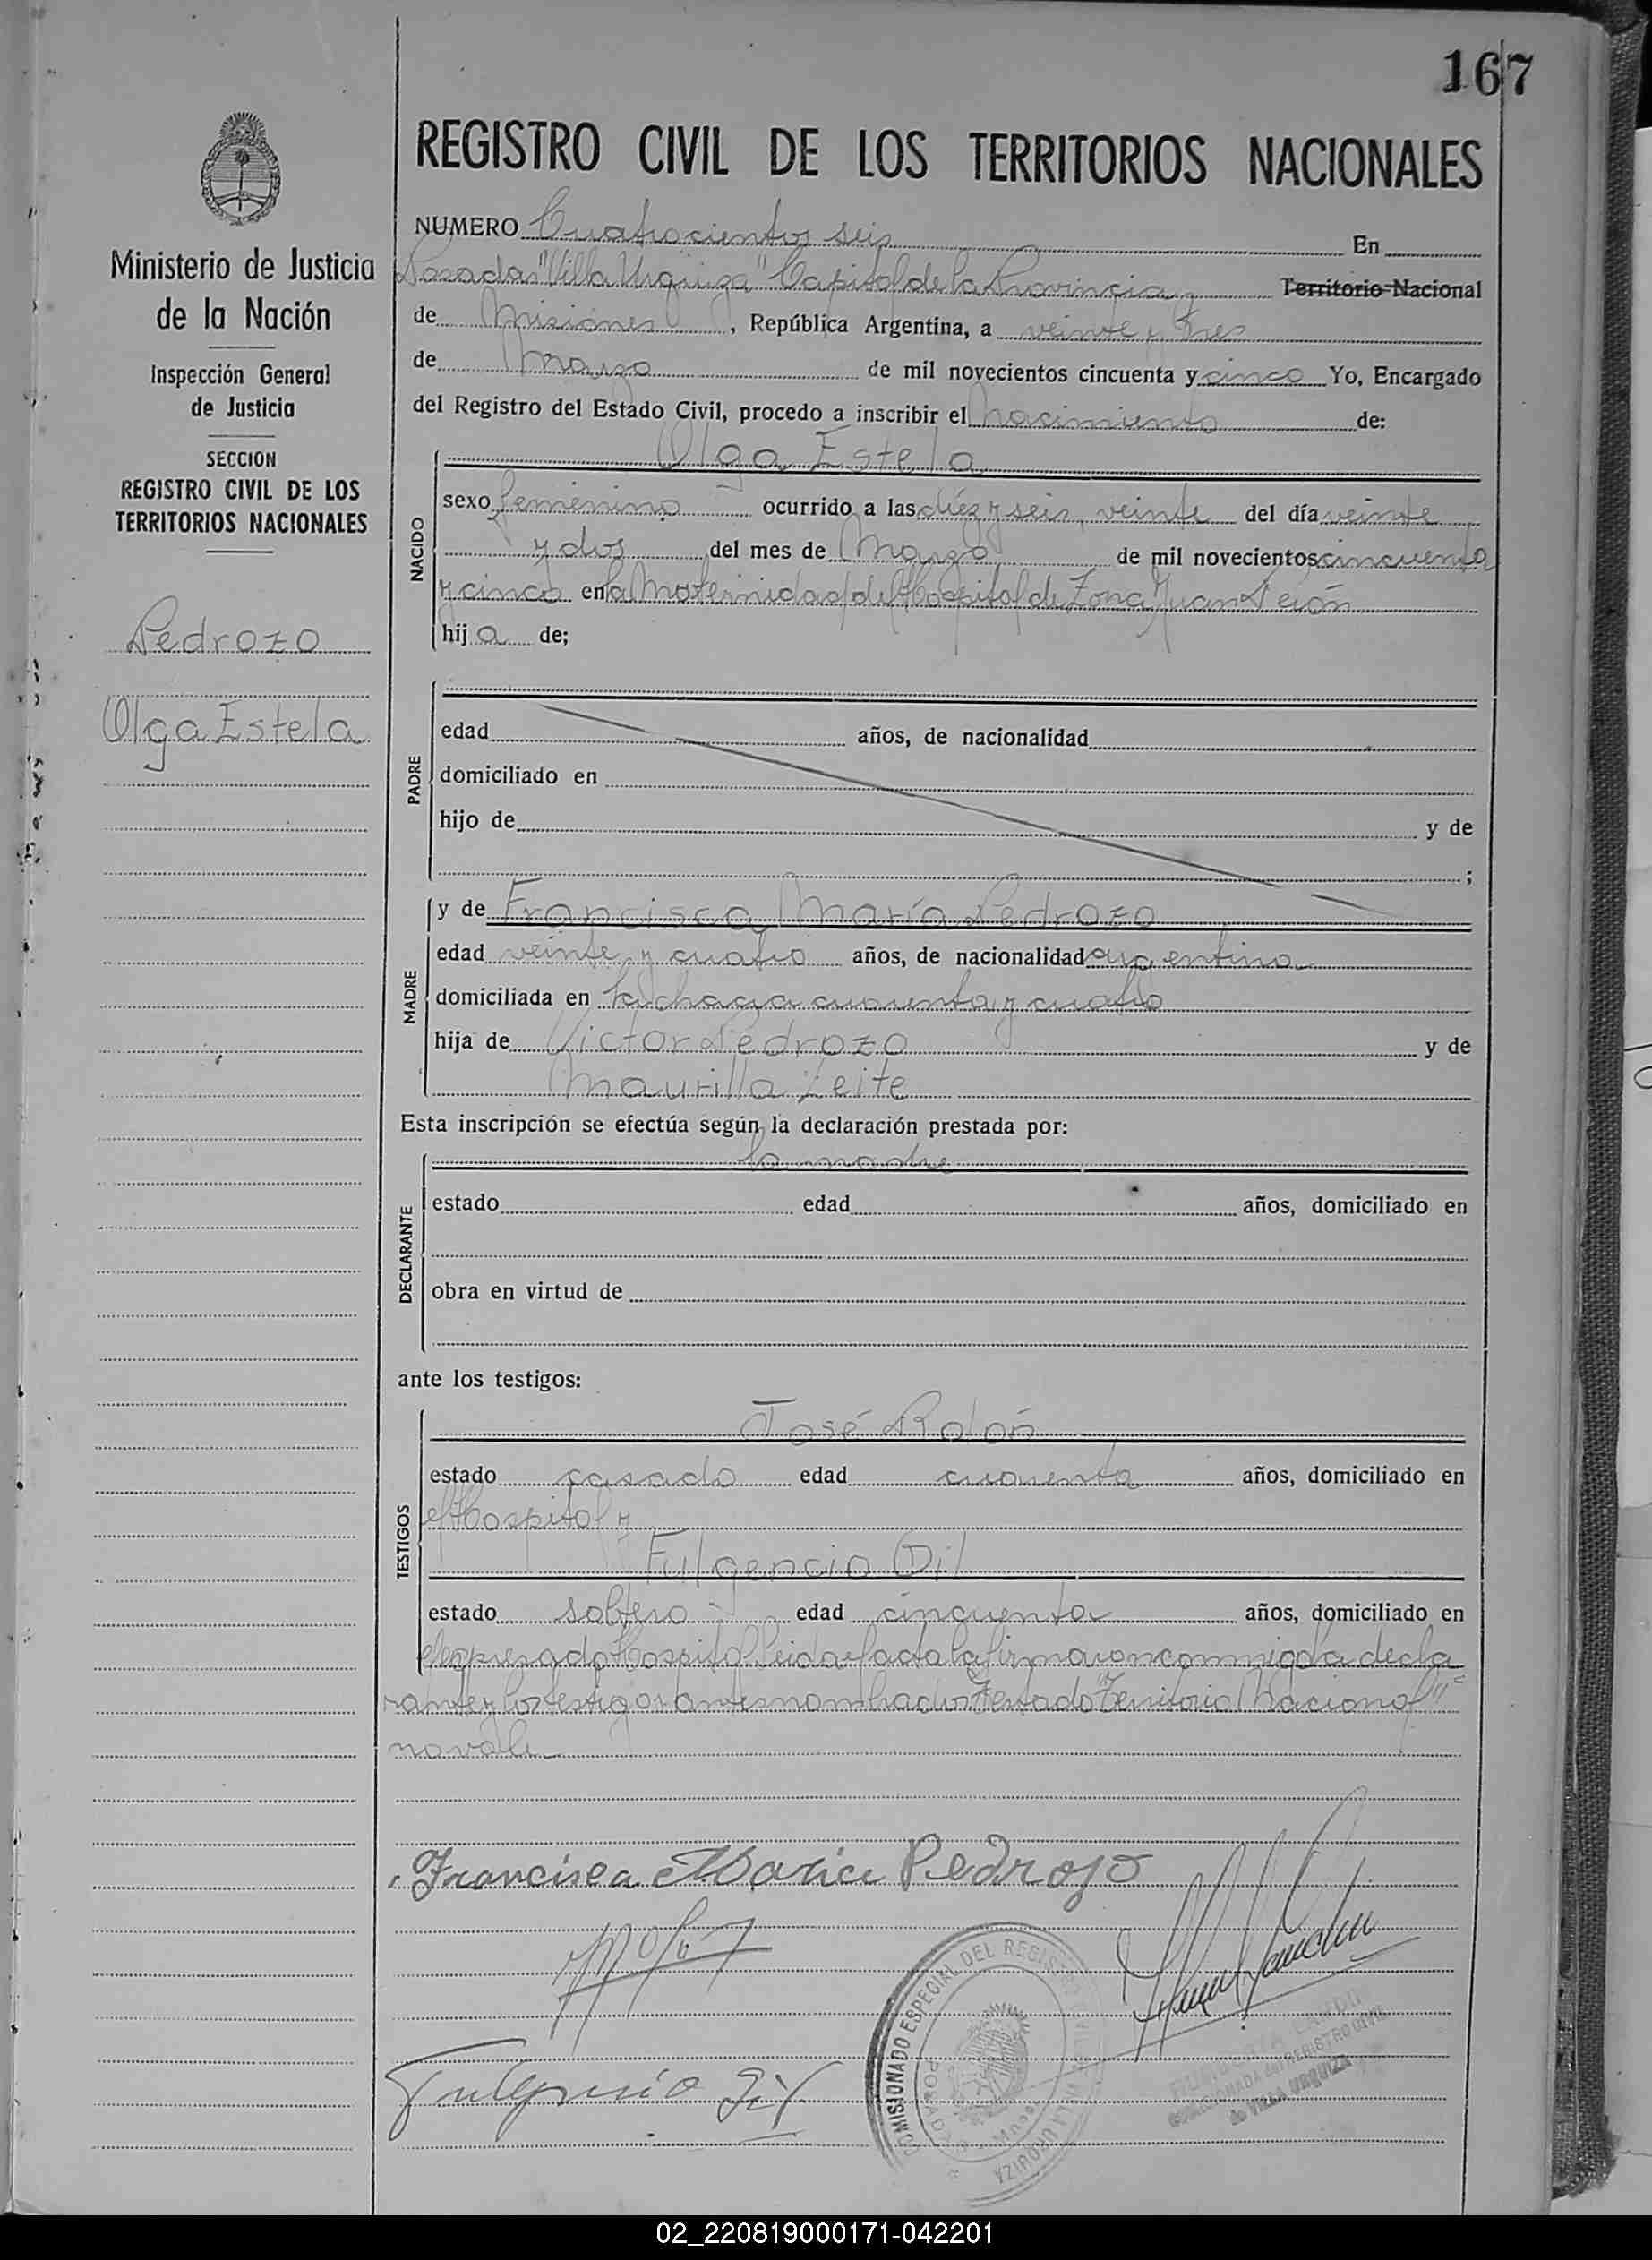 167
REGISTRO CIVIL DE LOS TERRITORIOS NACIONALES
Ministerio de Justicia
de la Nación
Inspección General
de Justicia
SECCION
REGISTRO CIVIL DE LOS
TERRITORIOS NACIONALES
Pedrozo
Olga Estela
NUMERO Cuatrocientos seis En
Posadas "Villa Urquiza" Capital de la Provincia Territorio Nacional
de Misiones, República Argentina, a veinte y tres
de Marzo de mil novecientos cincuenta y cinco Yo, Encargado
del Registro del Estado Civil, procedo a inscribir el nacimiento de:
NACIDO
Olga Estela
sexo femenino ocurrido a las diéz y seis, veinte del día veinte
y dos del mes de Marzo de mil novecientos cincuenta
y cinco en la Maternidad del Hospital de Zona Juan Perón
hija de;
PADRE
edad años, de nacionalidad
domiciliado en
hijo de y de
;
MADRE
y de Francisca María Pedrozo
edad veinte y cuatro años, de nacionalidad argentina
domiciliada en chacra cuarenta y cuatro
hija de Víctor Pedrozo y de
Maurilla Leite
Esta inscripción se efectúa según la declaración prestada por:
DECLARANTE
la madre
estado edad años, domiciliado en
obra en virtud de
ante los testigos:
TESTIGOS
José Rolón
estado casado edad cuarenta años, domiciliado en
el Hospital y
Fulgencio Gil
estado soltero edad cincuenta años, domiciliado en
el expresado Hospital Leida el acta la firmaron conmigo la decla
rante y los testigos antes nombrados Testado "Territorio Nacional"
no vale
Francisca Maria Pedrozo
Fulgencio Gil
COMISIONADO ESPECIAL DEL REGISTRO
POSADAS
VILLA URQUIZA
REGISTRO CIVIL
de VILLA URQUIZA
02_220819000171-042201